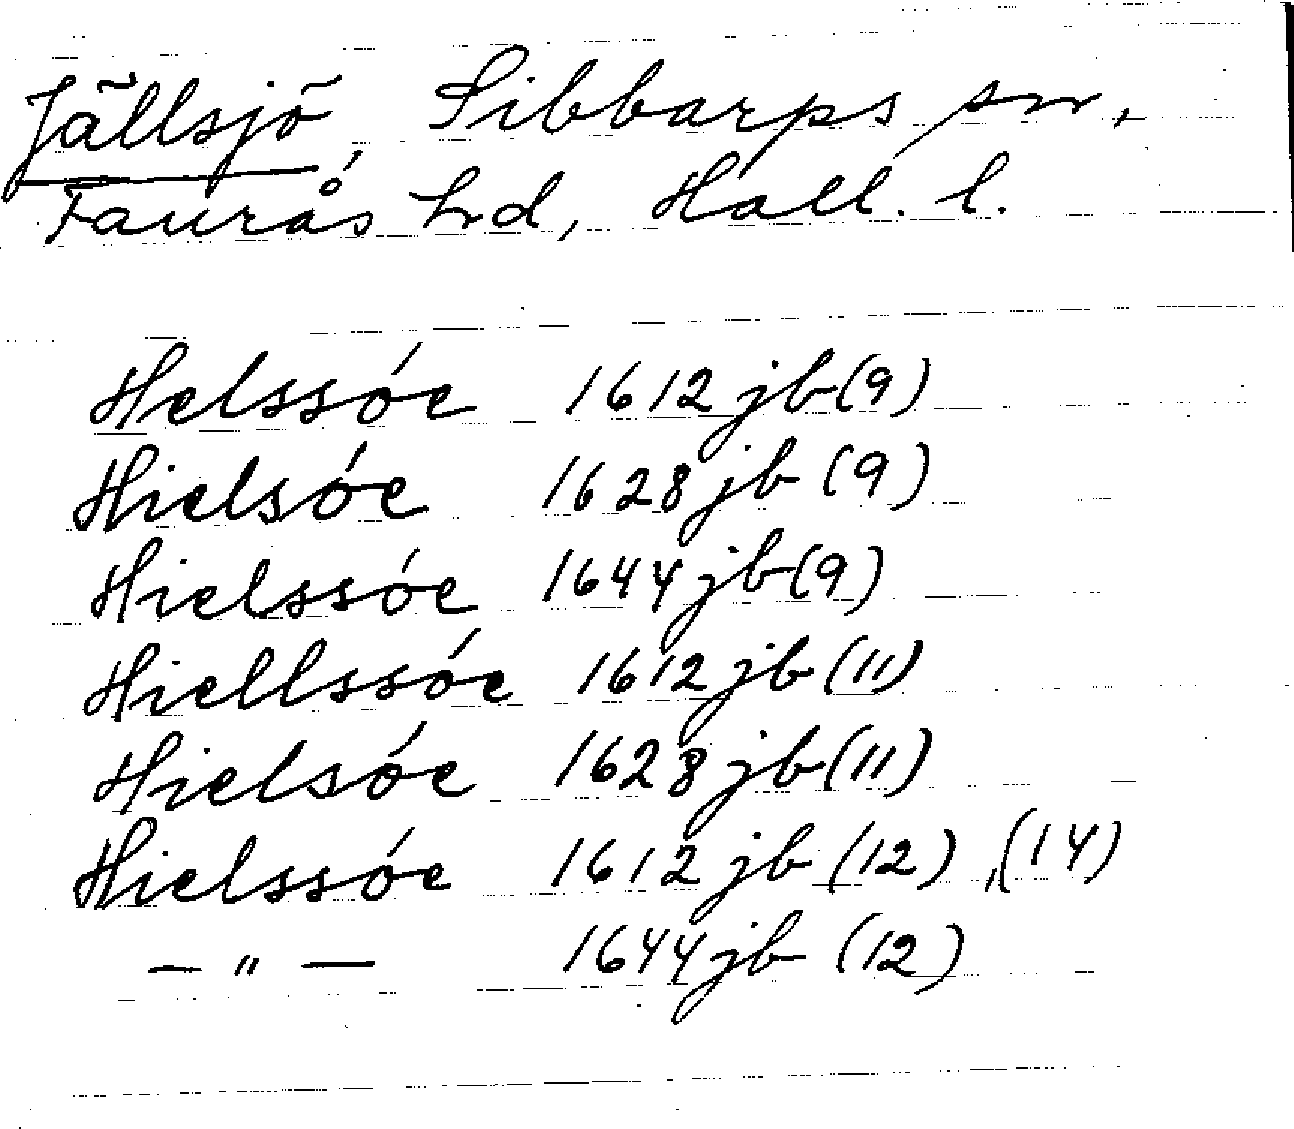 Jällsjö, Sibbarps sn,
Faurås hd, Hall. l.
Helssóe 1612 jb (9)
Hielsóe 1628 jb (9)
Hielssóe 1644 jb (9)
Hiellssóe 1612 jb (11)
Hielsóe 1628 jb (11)
Hielssóe 1612 jb (12), (14)
— " — 1644 jb (12)